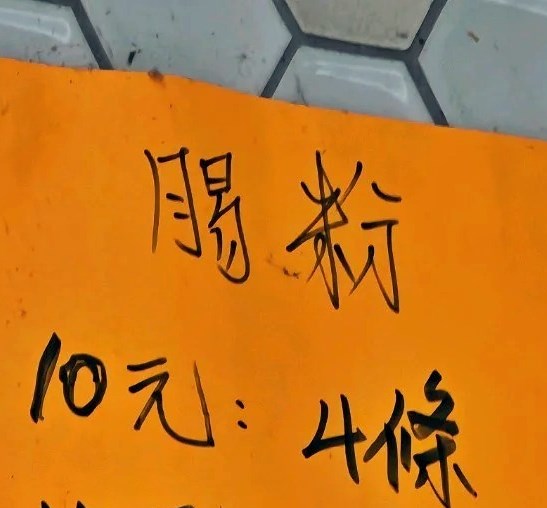 腸粉
10元:4條